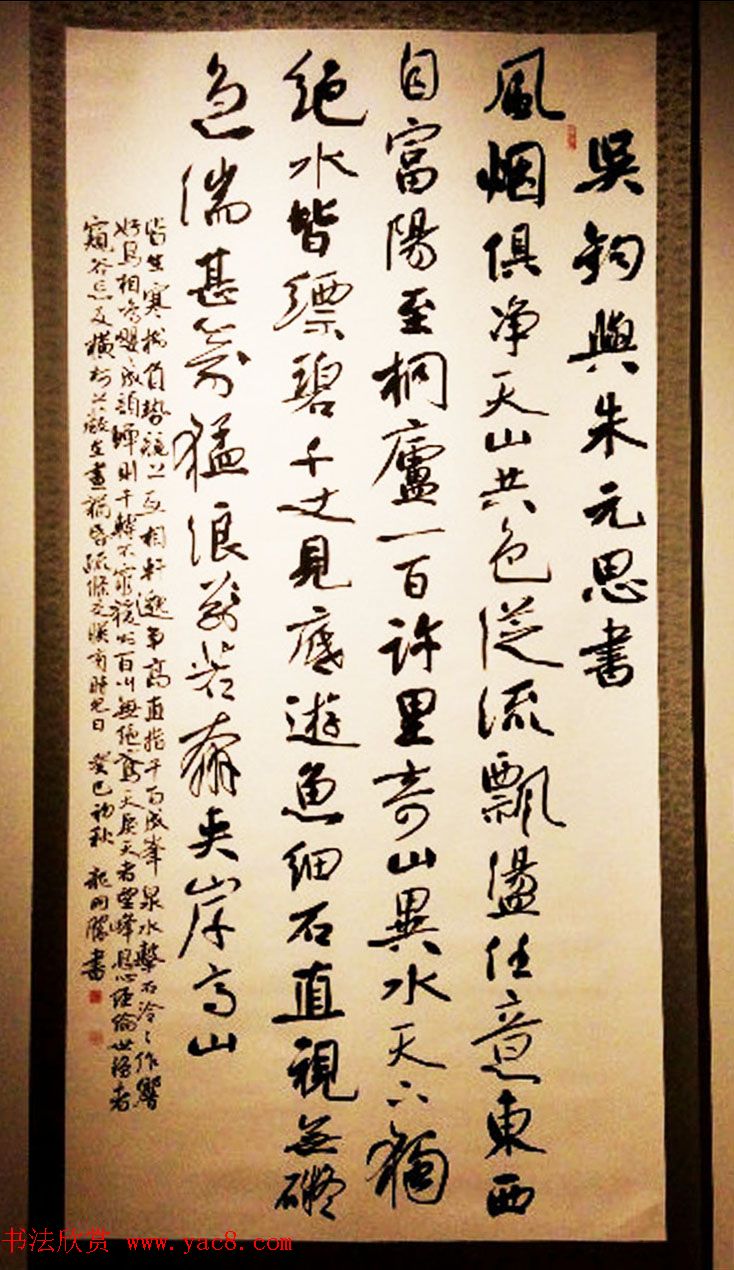 吳鈞與朱元思書
風烟俱净天山共色從流飄盪任意東西
自富陽至桐廬一百許里奇山異水天下獨
絶水皆縹碧千丈見底遊魚細石直視無礙
急湍甚箭猛浪若奔夹岸高山
皆生寒樹負勢競上互相軒邈爭高直指千百成峯泉水擊石泠々作響
好鳥相鳴嚶々成韻蟬則千轉不窮猨則百叫無絶鳶戾天者望峰息心經綸世務者
窺谷忘反橫柯上蔽在晝猶昏疏條交映有時見日 癸巳初秋 龍開勝書
书法欣赏 www.yac8.com